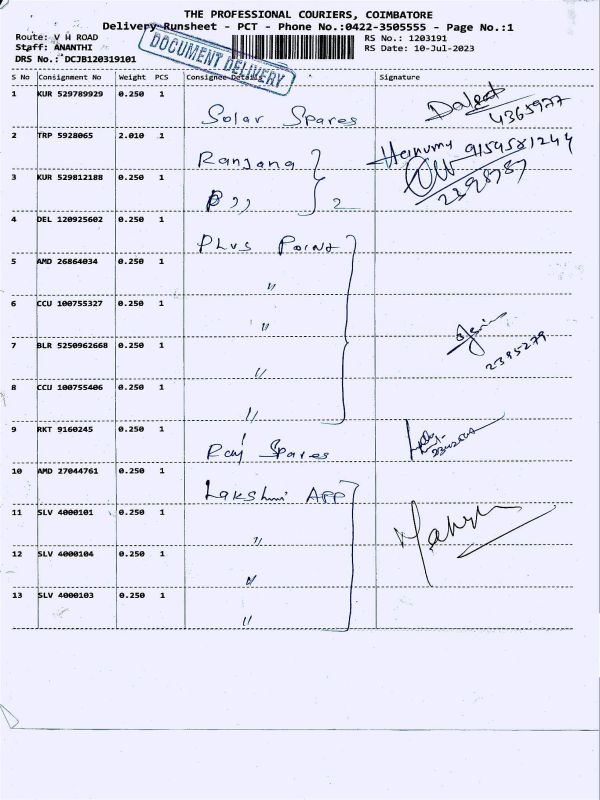 THE PROFESSIONAL COURIERS, COIMBATORE
Delivery Runsheet - PCT - Phone No.:0422-3505555 - Page No.:1
Route: V H ROAD
Staff: ANANTHI
DRS No.: DCJB120319101
DOCUMENT DELIVERY
RS No.: 1203191
RS Date: 10-Jul-2023
S No Consignment No Weight PCS Consignee Details Signature
1 KUR 529789929 0.250 1 Solar Spares 4365977
2 TRP 5928065 2.010 1 Ranjana 9159581244
3 KUR 529812188 0.250 1 ,, 2 2398787
4 DEL 120925602 0.250 1 Plus Point
5 AMD 26864034 0.250 1 "
6 CCU 100755327 0.250 1 "
7 BLR 5250962668 0.250 1 " 2395279
8 CCU 100755406 0.250 1 "
9 RKT 9160245 0.250 1 Raj Spares
10 AMD 27044761 0.250 1 Lakshmi APP
11 SLV 4000101 0.250 1 "
12 SLV 4000104 0.250 1 "
13 SLV 4000103 0.250 1 "